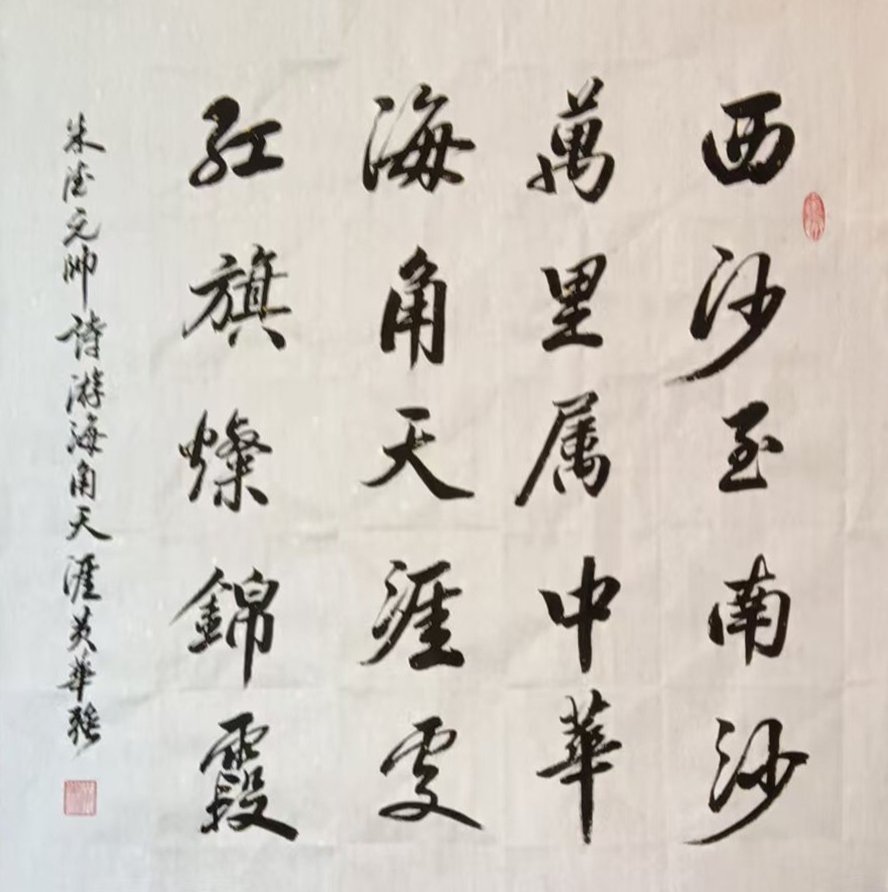 西沙至南沙
萬里属中華
海角天涯處
紅旗燦錦霞
朱德元帅詩游海角天涯黄華强